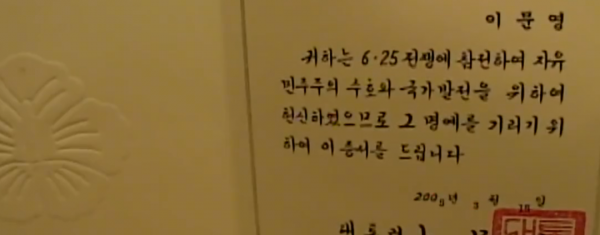 이 문 명
귀하는 6·25 전쟁에 참전하여 자유
민주주의 수호와 국가발전을 위하여
헌신하였으므로 그 명예를 기리기 위
하여 이 증서를 드립니다
년 월 일